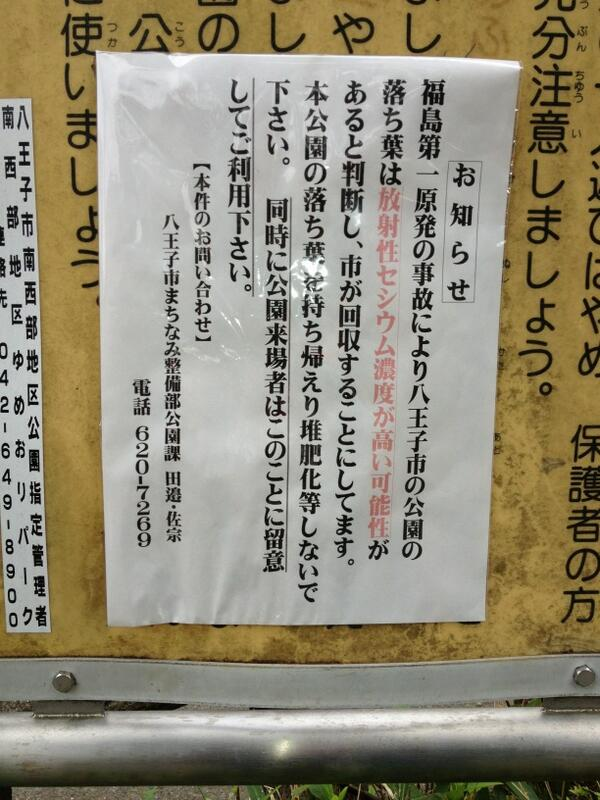 お知らせ
福島第一原発の事故により八王子市の公園の
落ち葉は放射性セシウム濃度が高い可能性が
あると判断し、市が回収することにしてます。
本公園の落ち葉を持ち帰えり堆肥化等しないで
下さい。 同時に公園来場者はこのことに留意
してご利用下さい。
【本件のお問い合わせ】
八王子市まちなみ整備部公園課 田邉・佐宗
電話 620-7269
保護者の方
びはやめ
充分注意しましょう。
ぶんちゅうい
まし
や
まし
の
公
こう
に使いましょう。
つか
八王子市南西部地区公園指定管理者
南西部地区ゆめおりパーク
連絡先 042-649-8900